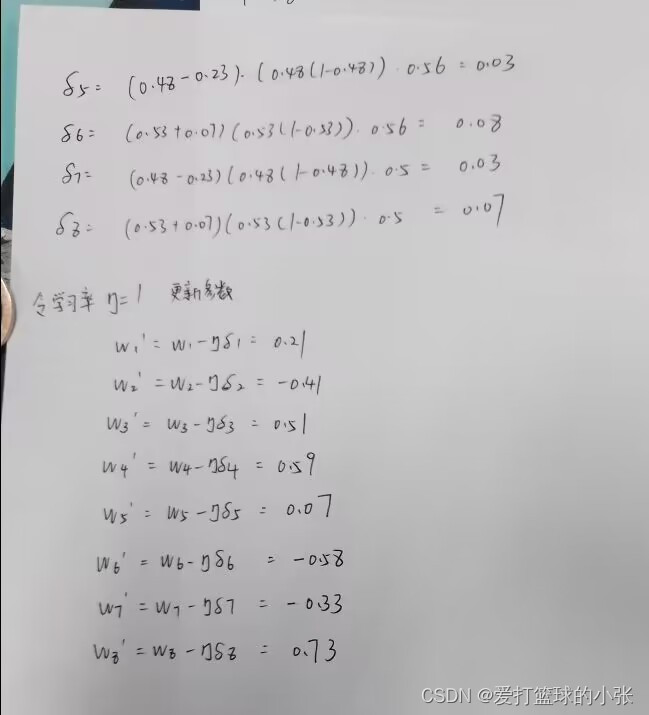 δ5 = (0.48 - 0.23)·(0.48(1-0.48))·0.56 = 0.03
δ6 = (0.53+0.07)(0.53(1-0.53))·0.56 = 0.08
δ7 = (0.48-0.23)(0.48(1-0.48))·0.5 = 0.03
δ8 = (0.53+0.07)(0.53(1-0.53))·0.5 = 0.07
令学习率 η=1 更新参数
w1' = w1-ηδ1 = 0.21
w2' = w2-ηδ2 = -0.41
w3' = w3-ηδ3 = 0.51
w4' = w4-ηδ4 = 0.59
w5' = w5-ηδ5 = 0.07
w6' = w6-ηδ6 = -0.58
w7' = w7-ηδ7 = -0.33
w8' = w8-ηδ8 = 0.73
CSDN @爱打篮球的小张